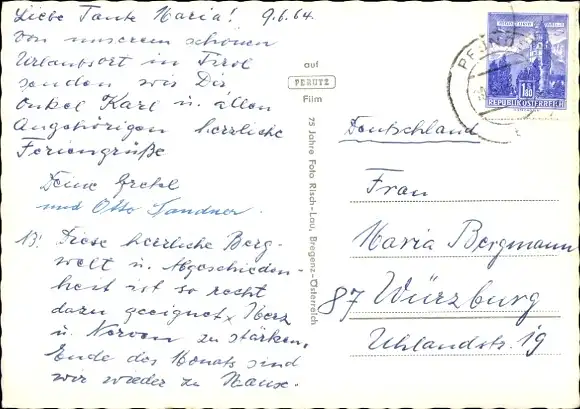 Liebe Tante Maria! 9.6.64.
Von unserem schönen
Urlaubsort in Tirol
senden wir Dir
Onkel Karl u. allen
Angehörigen herrliche
Feriengrüße
Deine Gretel
und Otto Tandner.
N! Diese herrliche Berg-
welt u. Abgeschieden-
heit ist so recht
dazu geeignet, Herz
u. Nerven zu stärken.
Ende des Monats sind
wir wieder zu Hause.
auf
PERUTZ
Film
75 Jahre Foto Risch-Lau, Bregenz-Österreich
PFUND
1.80
REPUBLIK ÖSTERREICH
Deutschland
Frau
Maria Bergmann
87 Würzburg
Uhlandstr. 19